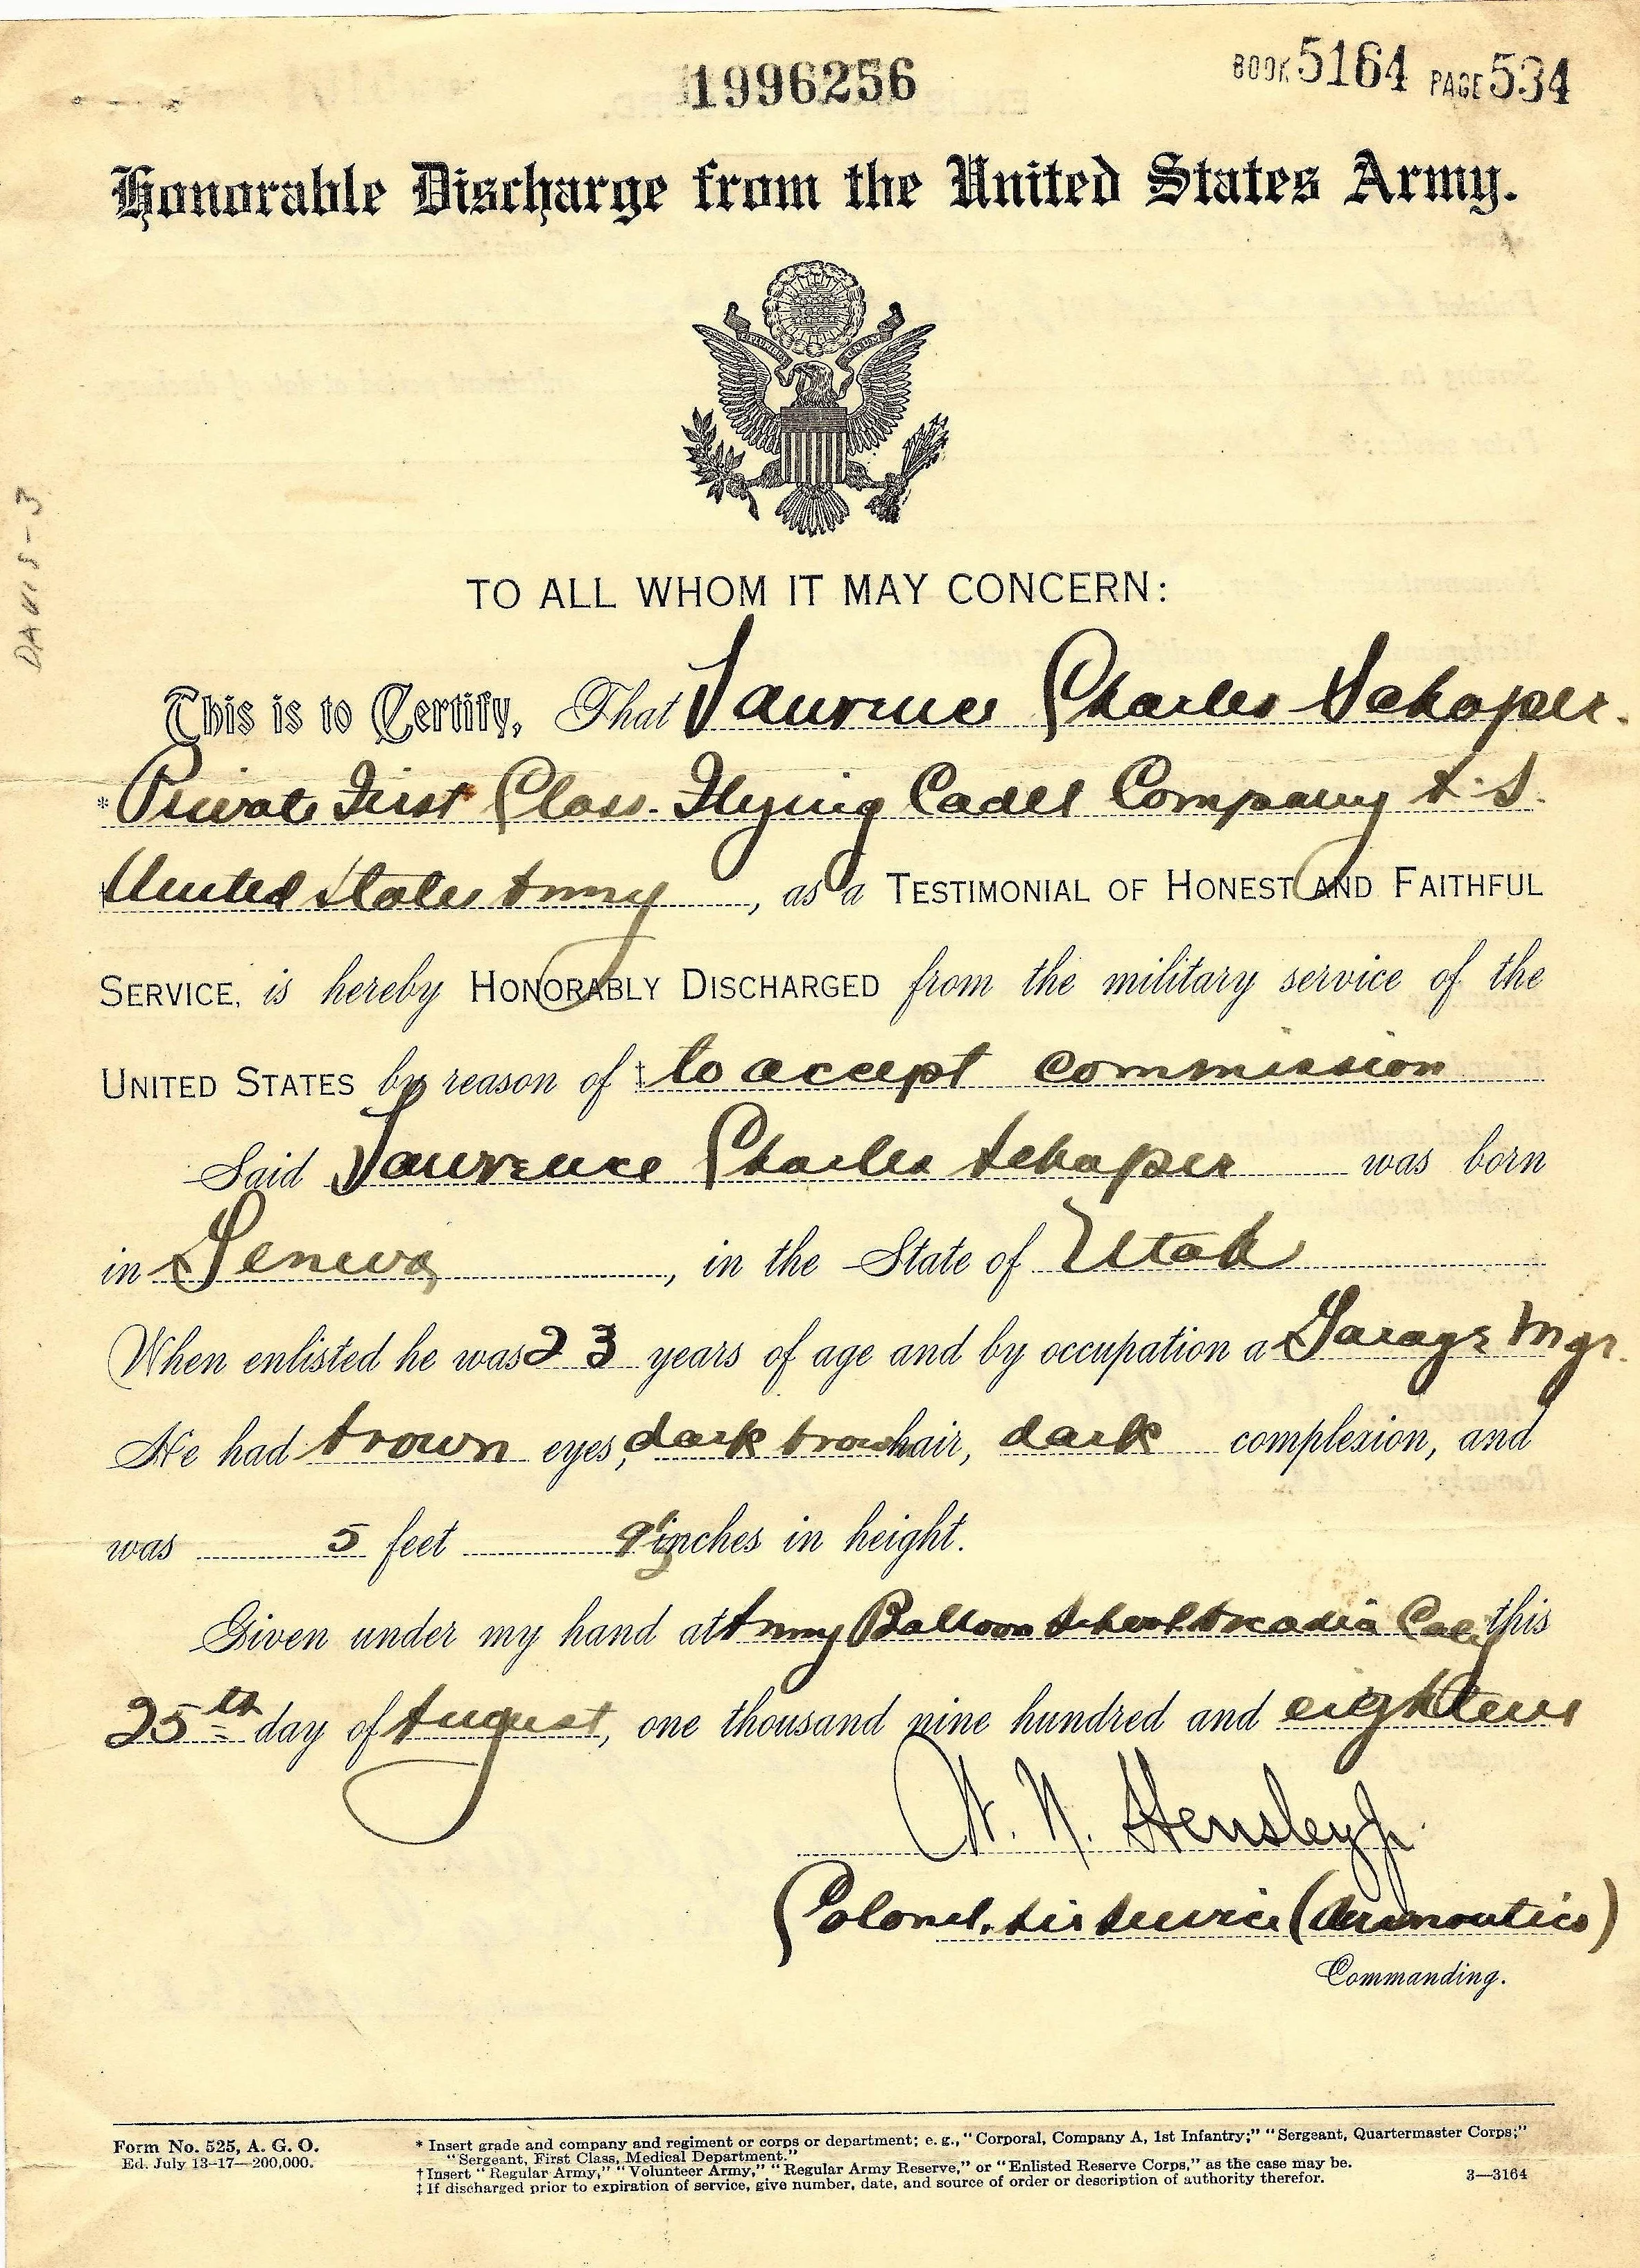 1996256
BOOK 5164 PAGE 534
Honorable Discharge from the United States Army.
TO ALL WHOM IT MAY CONCERN:
This is to Certify, That Laurence Charles Schaper.
*Private First Class. Flying Cadet Company A.S.
United States Army, as a TESTIMONIAL OF HONEST AND FAITHFUL
SERVICE, is hereby HONORABLY DISCHARGED from the military service of the
UNITED STATES by reason of ‡ to accept commission
Said Lawrence Charles Schaper was born
in Geneva, in the State of Utah
When enlisted he was 23 years of age and by occupation a Garage Mgr.
He had brown eyes, dark brown hair, dark complexion, and
was 5 feet 9 inches in height.
Given under my hand at Army Balloon School Arcadia Calif this
25th day of August, one thousand nine hundred and eighteen
W. N. Hensley Jr.
Colonel, Air Service (Aeronautics)
Commanding.
Form No. 525, A. G. O.
Ed. July 13-17—200,000.
* Insert grade and company and regiment or corps or department; e. g., "Corporal, Company A, 1st Infantry;" "Sergeant, Quartermaster Corps;"
"Sergeant, First Class, Medical Department."
† Insert "Regular Army," "Volunteer Army," "Regular Army Reserve," or "Enlisted Reserve Corps," as the case may be.
‡ If discharged prior to expiration of service, give number, date, and source of order or description of authority therefor.
3—3164
DAVIS-3